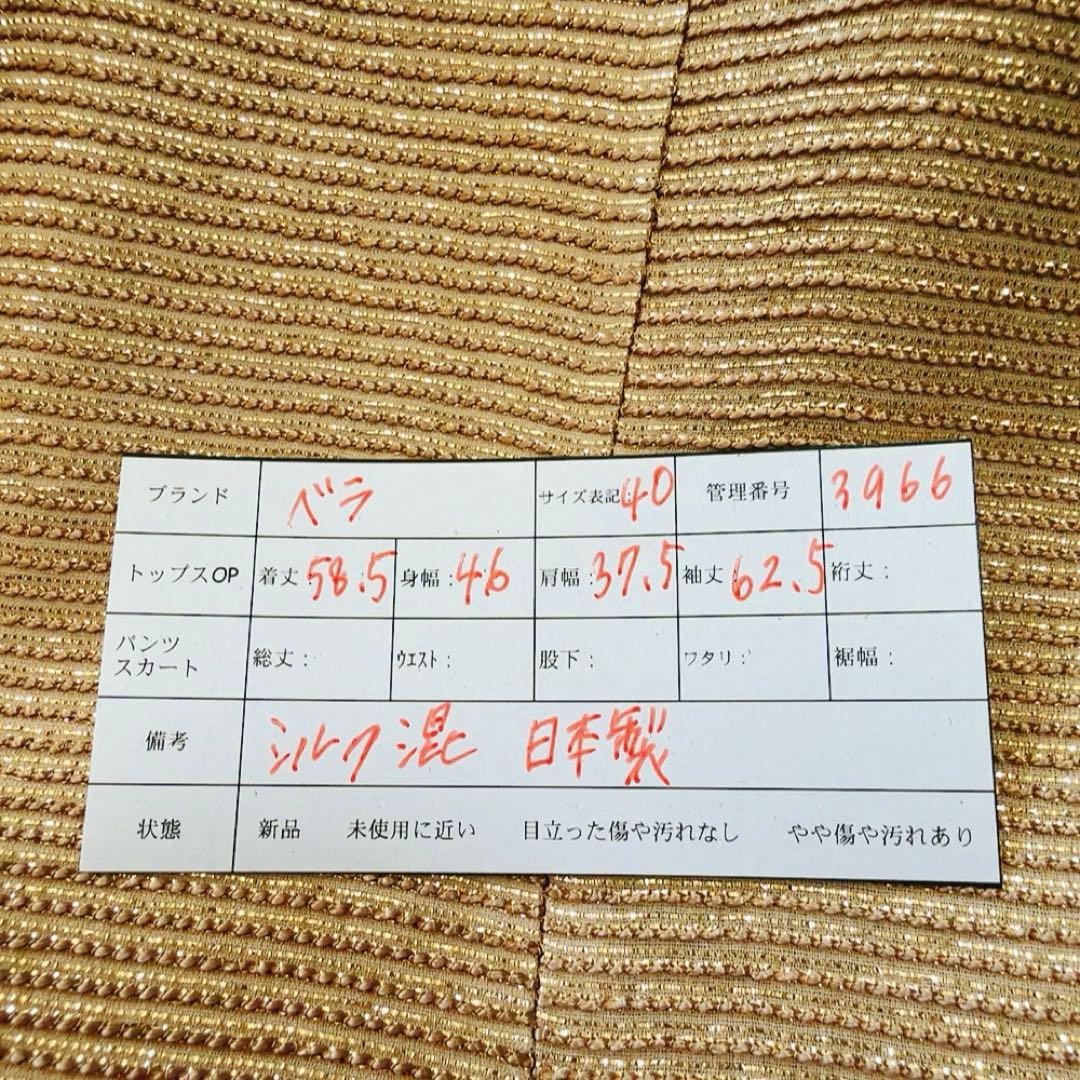 ブランド ベラ サイズ表記:40 管理番号 3966
トップスOP 着丈:58.5 身幅:46 肩幅:37.5 袖丈:62.5 裄丈:
パンツ
スカート 総丈: ウエスト: 股下: ワタリ: 裾幅:
備考 シルク混 日本製
状態 新品 未使用に近い 目立った傷や汚れなし やや傷や汚れあり